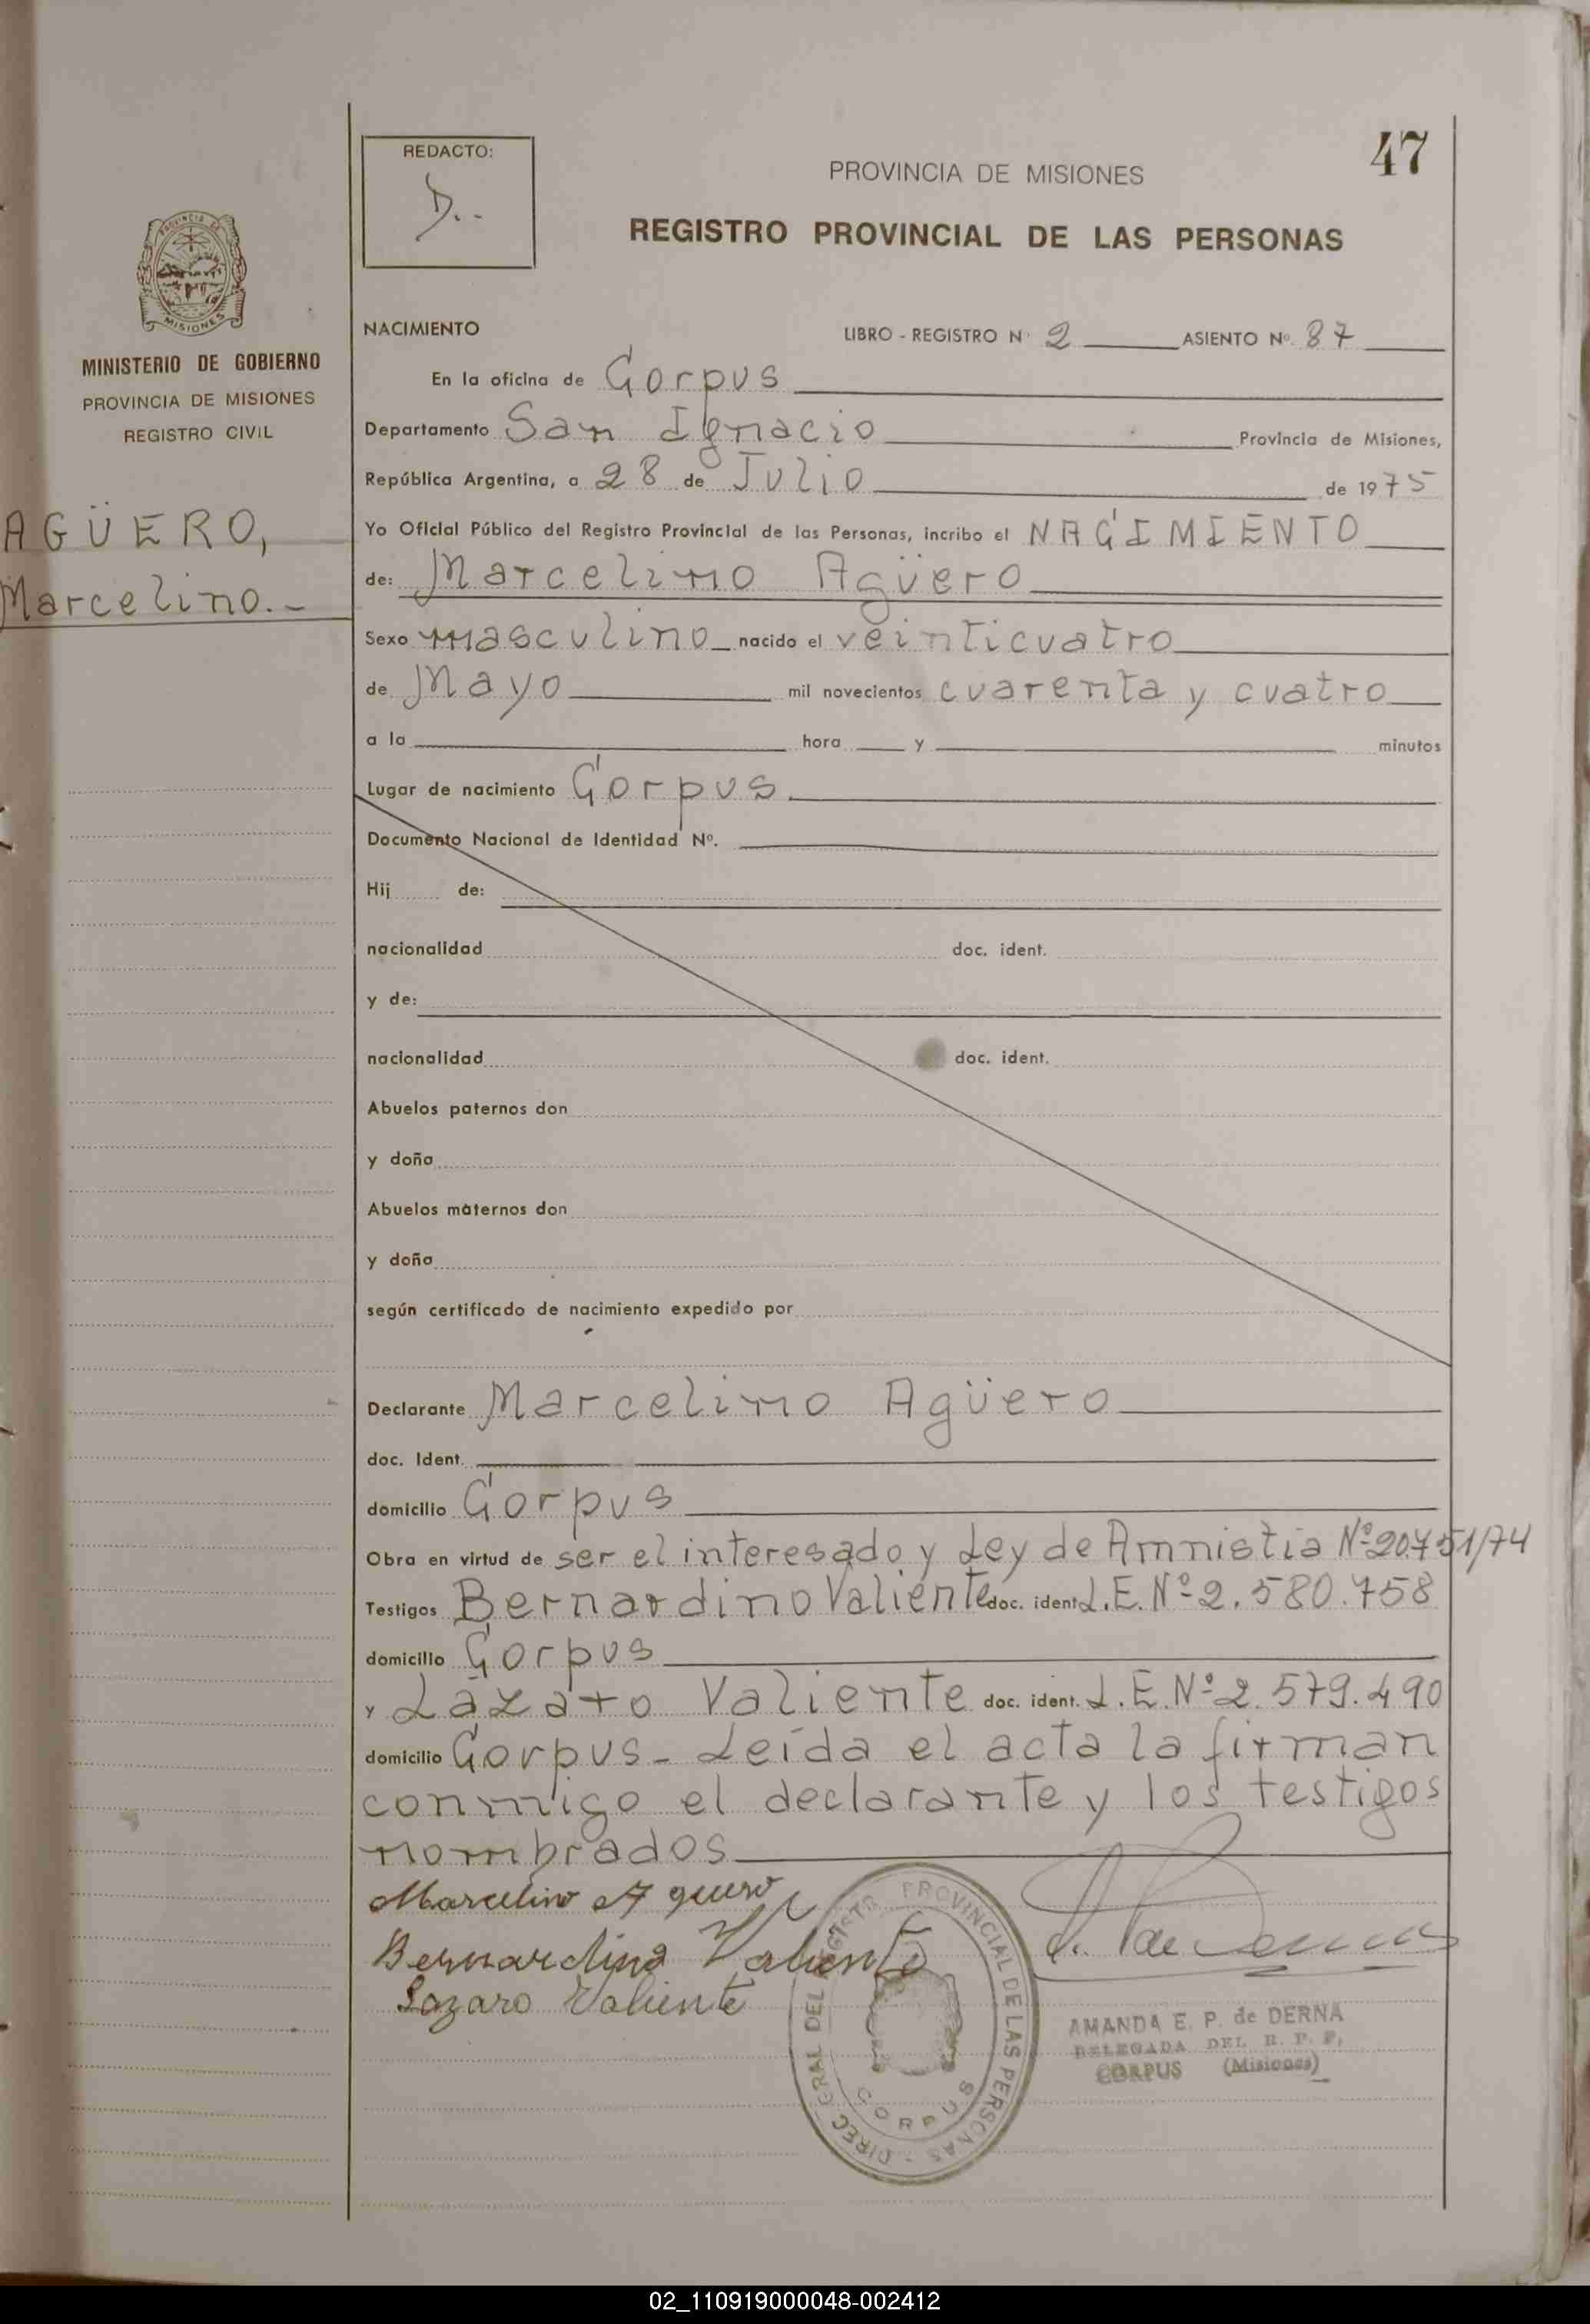 47
REDACTO:
D..
PROVINCIA DE MISIONES
REGISTRO PROVINCIAL DE LAS PERSONAS
PROVINCIA DE
MISIONES
MINISTERIO DE GOBIERNO
PROVINCIA DE MISIONES
REGISTRO CIVIL
AGÜERO,
Marcelino.-
NACIMIENTO LIBRO - REGISTRO Nº 2 ASIENTO Nº 87
En la oficina de Corpus
Departamento San Ignacio Provincia de Misiones,
República Argentina, a 28 de Julio de 1975
Yo Oficial Público del Registro Provincial de las Personas, incribo el NACIMIENTO
de: Marcelino Agüero
Sexo masculino nacido el veinticuatro
de Mayo mil novecientos cuarenta y cuatro
a la hora y minutos
Lugar de nacimiento Corpus
Documento Nacional de Identidad Nº.
Hij de:
nacionalidad doc. ident.
y de:
nacionalidad doc. ident.
Abuelos paternos don
y doña
Abuelos maternos don
y doña
según certificado de nacimiento expedido por
Declarante Marcelino Agüero
doc. Ident.
domicilio Corpus
Obra en virtud de ser el interesado y Ley de Amnistia Nº 20.751/74
Testigos Bernardino Valiente doc. ident L.E. Nº 2.580.758
domicilio Corpus
y Lázaro Valiente doc. ident. L.E. Nº 2.579.490
domicilio Corpus - Leída el acta la firman
conmigo el declarante y los testigos
nombrados
Marcelino Aguero
Bernardino Valiente
Lazaro Valiente
DIREC. GRAL DEL REGISTR. PROVINCIAL DE LAS PERSONAS -
CORPUS
AMANDA E. P. de DERNA
DELEGADA DEL R. P. P.
CORPUS (Misiones)
02_110919000048-002412